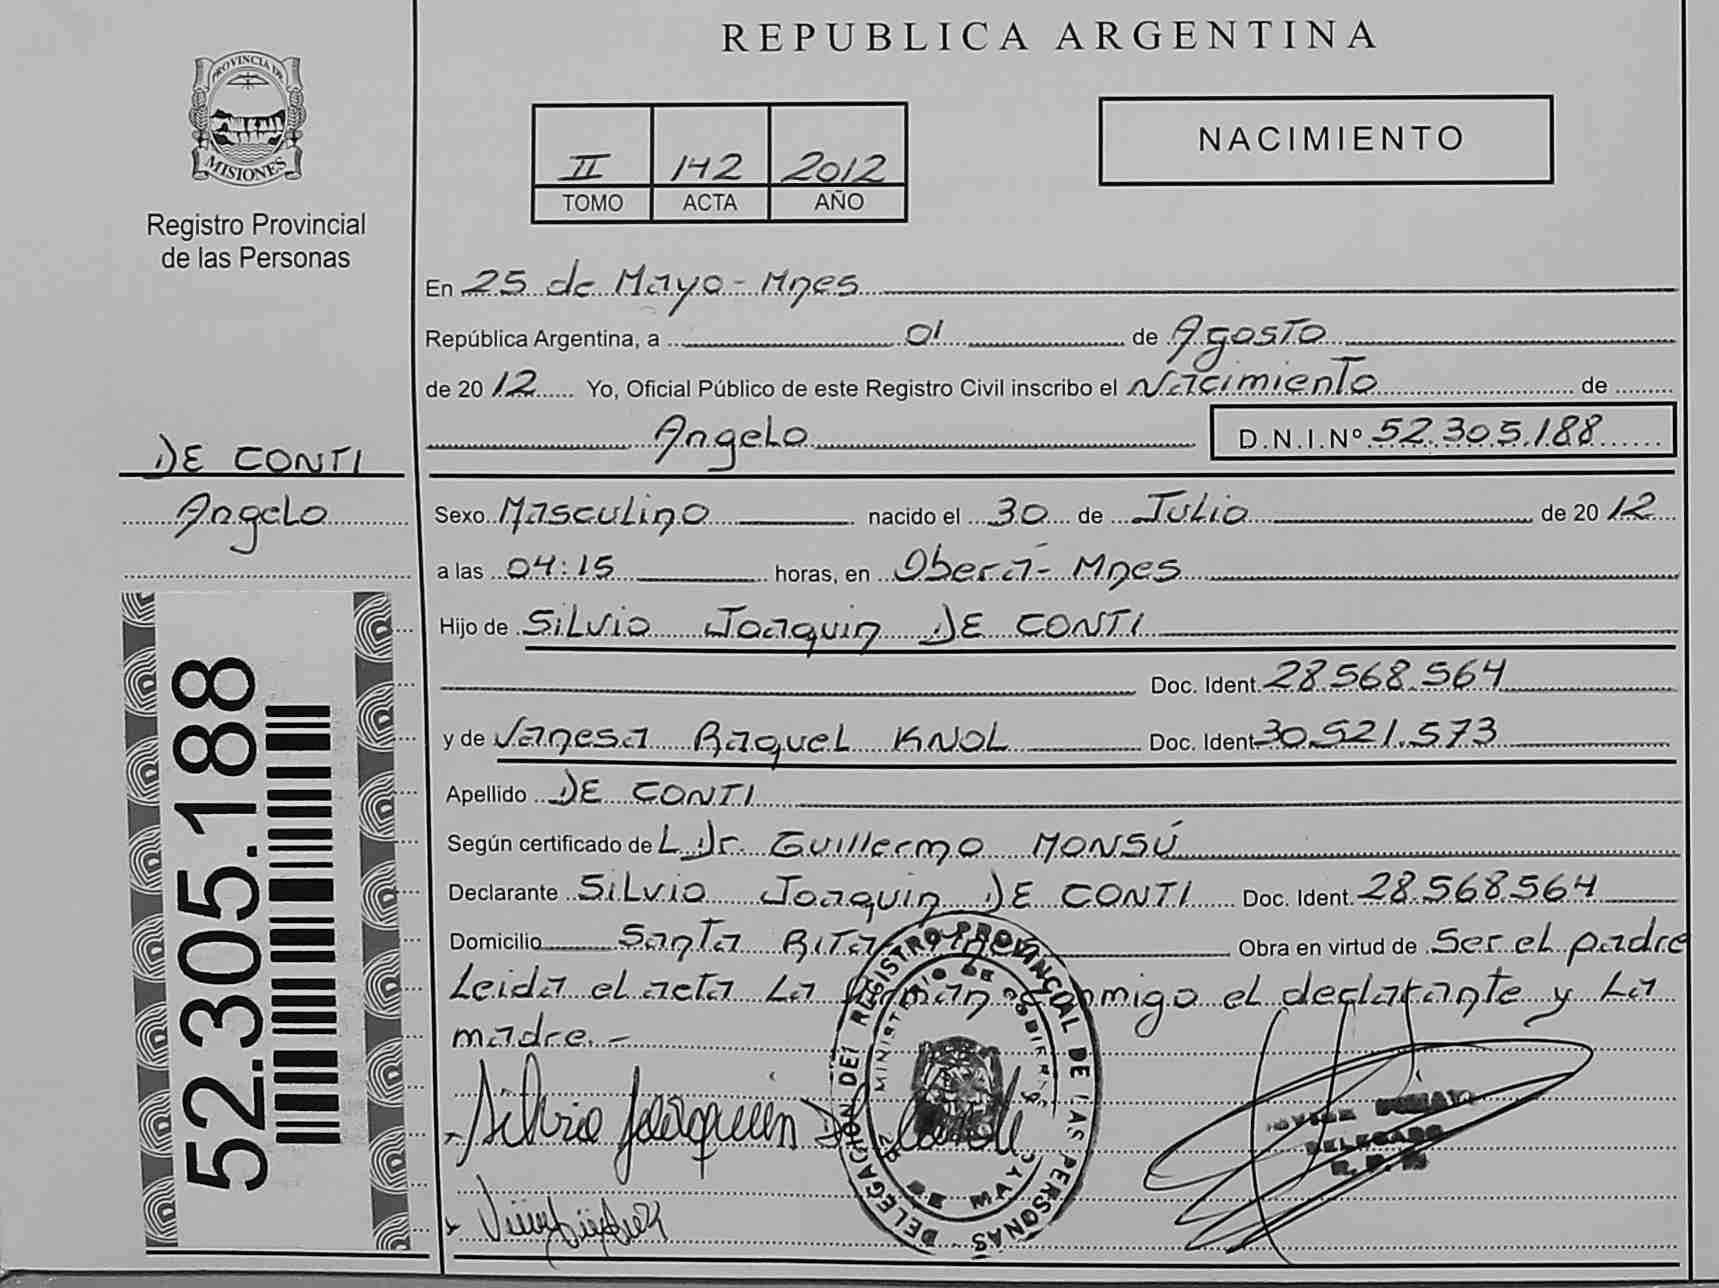 REPUBLICA ARGENTINA
PROVINCIA DE
MISIONES
Registro Provincial
de las Personas
II 142 2012
TOMO ACTA AÑO
NACIMIENTO
En 25 de Mayo - Mnes
República Argentina, a 01 de Agosto
de 20 12 Yo, Oficial Público de este Registro Civil inscribo el Nacimiento de
Angelo D.N.I.Nº 52.305.188
DE CONTI
Angelo
Sexo Masculino nacido el 30 de Julio de 20 12
a las 04:15 horas, en Oberá - Mnes
Hijo de Silvio Joaquin DE CONTI
Doc. Ident. 28.568.564
y de Vanesa Raquel KNOL Doc. Ident 30.521.573
Apellido DE CONTI
Según certificado de L Dr. Guillermo MONSÚ
Declarante Silvio Joaquin DE CONTI Doc. Ident. 28.568.564
Domicilio Santa Rita Mnes Obra en virtud de Ser el padre
Leida el acta La firman conmigo el declarante y La
madre.-
52.305.188
Silvio Joaquin De Conti
DELEGACION DEL REGISTRO PROVINCIAL DE LAS PERSONAS
MINISTERIO DE GOBIERNO
DE MAYO
DELEGADO